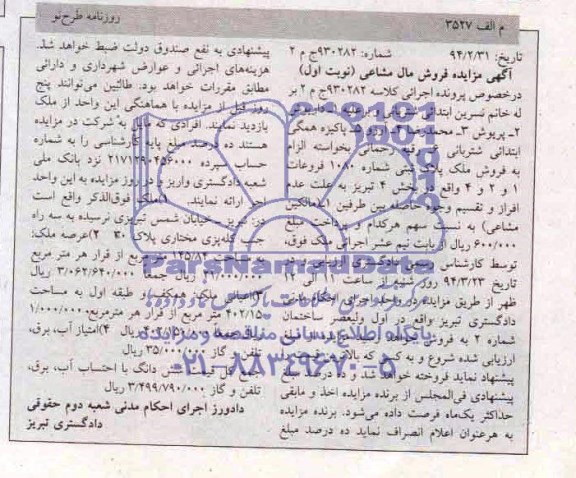 روزنامه طرح‌نو
م الف ۳۵۲۷
تاریخ: ۹۴/۲/۳۱ شماره: ۹۳۰۲۸۲ج م ۲
آگهی مزایده فروش مال مشاعی (نوبت اول)
درخصوص پرونده اجرائی کلاسه ۹۳۰۲۸۲ج م ۲ بر
له خانم نسرین ابتدائی شتربانی و برعلیه
۲ـ پریوش ۳ـ محمدرضا ۴ـ آرزو ۵ـ پاکیزه همگی
ابتدائی شتربانی ۶ـ رقیه رحمانی بخواسته الزام
به فروش ملک پلاک ثبتی شماره ۱۰۸۰ فروعات
۱ و ۲ و ۴ واقع در بخش ۴ تبریز به علت عدم
افراز و تقسیم وجوه حاصله بین طرفین (مالکین
مشاعی) به نسبت سهم هرکدام و پرداخت مبلغ
۶۰۰/۰۰۰ ریال از بابت نیم عشر اجرائی ملک فوق،
توسط کارشناس رسمی دادگستری ارزیابی و در
تاریخ ۹۴/۳/۲۳ روز شنبه از ساعت ۱۱ الی ۱۲
ظهر از طریق مزایده در واحد اجرای احکام مدنی
دادگستری تبریز واقع در اول ولیعصر ساختمان
شماره ۲ به فروش خواهد رسید مزایده از مبلغ
ارزیابی شده شروع و به کسی که بالاترین قیمت را
پیشنهاد نماید فروخته خواهد شد و ده درصد مبلغ
پیشنهادی فی‌المجلس از برنده مزایده اخذ و مابقی
حداکثر یک‌ماه فرصت داده می‌شود. برنده مزایده
به هرعنوان اعلام انصراف نماید ده درصد مبلغ
پیشنهادی به نفع صندوق دولت ضبط خواهد شد.
هزینه‌های اجرائی و عوارض شهرداری و دارائی
مطابق مقررات خواهد بود. طالبین می‌توانند پنج
روز قبل از مزایده با هماهنگی این واحد از ملک
بازدید نمایند. افرادی که مایل به شرکت در مزایده
هستند ده درصد مبلغ پایه کارشناسی را به شماره
حساب سپرده ۲۱۷۱۲۹۰۴۵۶۰۰۰ نزد بانک ملی
شعبه دادگستری واریز و در روز مزایده به این واحد
اجرا ارائه نمایند. (ملک فوق‌الذکر واقع است
در: تبریز ـ خیابان شمس تبریزی نرسیده به سه راه
جنب کله‌پزی مختاری پلاک ۳۰ ۲)عرصه ملک:
به مساحت ۱۴۵/۸۴ متر مربع از قرار هر متر مربع
۲۱/۰۰۰/۰۰۰ ریال جمعاً ۳/۰۶۲/۶۴۰/۰۰۰ ریال
۳)اعیانی ملک: همکف و طبقه اول به مساحت
۴۰۲/۱۵ متر مربع از قرار هر مترمربع ۱/۰۰۰/۰۰۰
ریال جمعاً ۴۰۲/۱۵۰/۰۰۰ ریال ۴)امتیاز آب، برق،
تلفن و گاز ۳۵/۰۰۰/۰۰۰ ریال
دانگ با احتساب آب، برق،
تلفن و گاز ۳/۴۹۹/۷۹۰/۰۰۰ ریال
دادورز اجرای احکام مدنی شعبه دوم حقوقی
دادگستری تبریز
ParsNamadData
پایگاه اطلاع رسانی مناقصه و مزایده
۰۲۱-۸۸۳۴۹۶۷۰-۵